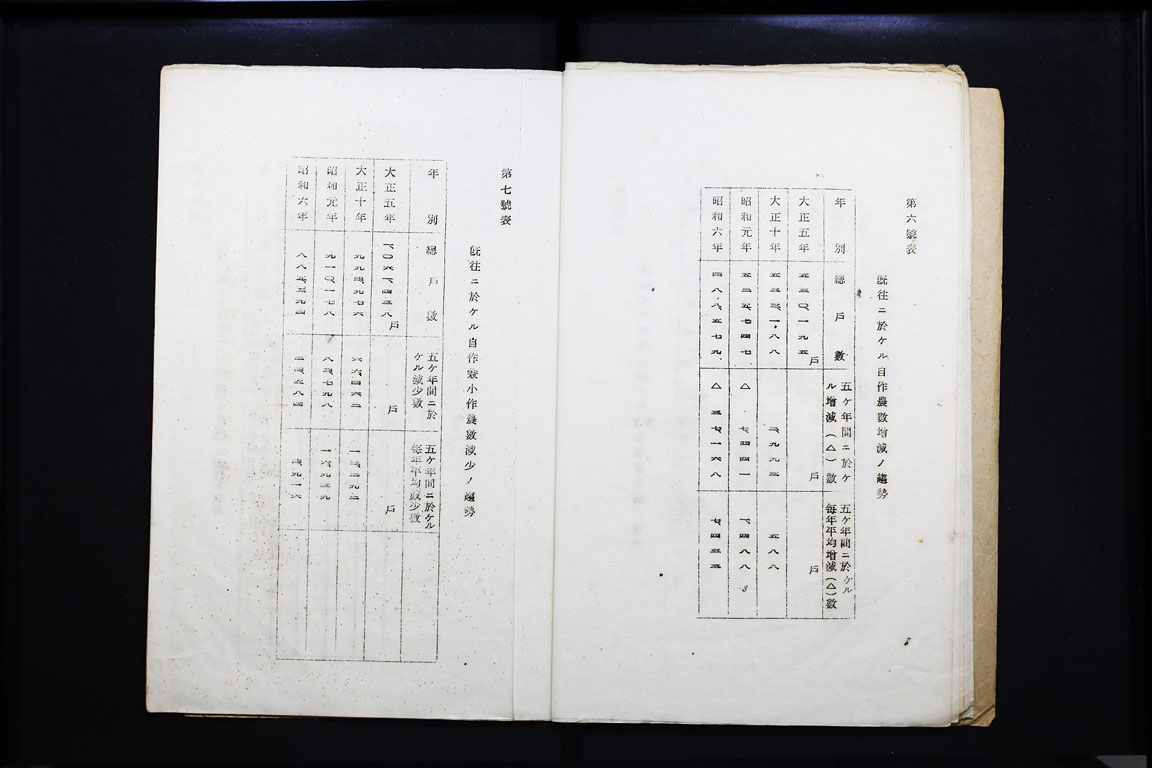 第六號表
既往ニ於ケル自作農數增減ノ趨勢
年別 總戶數 五ケ年間ニ於ケル增減(△)數 五ケ年間ニ於ケル每年平均增減(△)數
大正五年 五三〇、一九五戶 戶 戶
大正十年 五三三、一八八 二、九九三 五八八
昭和元年 五二五、七四七 △ 七、四四一 一、四八八
昭和六年 四八八、五七九 △ 三七、一六八 七、四三三
第七號表
既往ニ於ケル自作兼小作農數減少ノ趨勢
年別 總戶數 五ケ年間ニ於ケル減少數 五ケ年間ニ於ケル每年平均減少數
大正五年 一、〇六一、四三八戶 戶 戶
大正十年 九九四、九七六 六六、四六二 一三、二九二
昭和元年 九一〇、一七八 八四、七九八 一六、九五九
昭和六年 八八五、五九四 二四、五八四 四、九一六